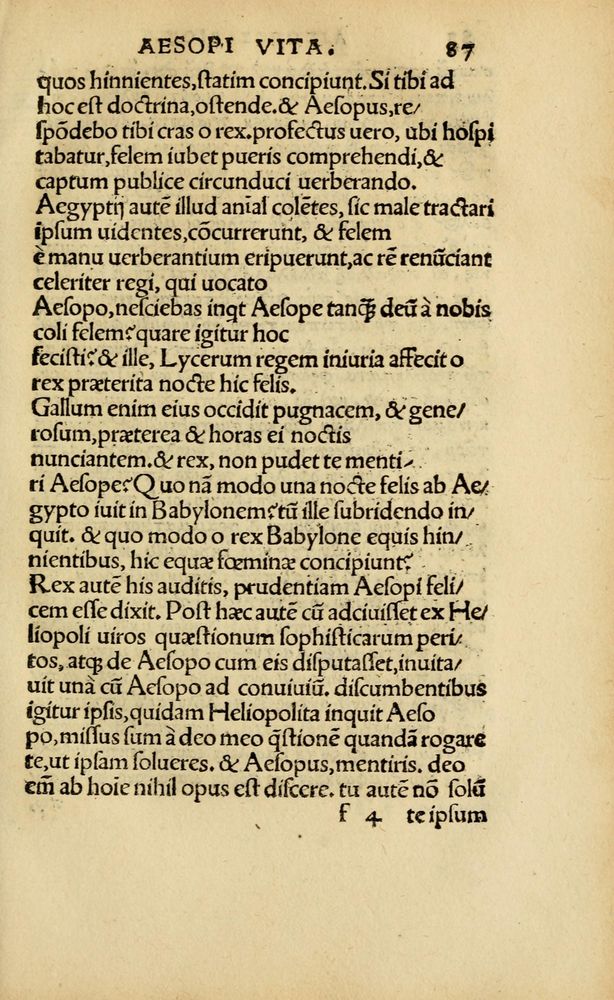 AESOPI VITA. 87
quos hinnientes,ſtatim concipiunt.Si tibi ad
hoc eſt doctrina,oſtende.& Aeſopus,re/
ſpõdebo tibi cras o rex.profectus uero, ubi hoſpi
tabatur,felem iubet pueris comprehendi,&
captum publice circunduci uerberando.
Aegyptij autẽ illud anĩal colẽtes, ſic male tractari
ipſum uidentes,cõcurrerunt, & felem
è manu uerberantium eripuerunt,ac rẽ renũciant
celeriter regi, qui uocato
Aeſopo,neſciebas inqt Aeſope tanqꝫ deũ à nobis
coli felem?quare igitur hoc
feciſti?& ille, Lycerum regem iniuria affecit o
rex præterita nocte hic felis.
Gallum enim eius occidit pugnacem, & gene/
roſum,præterea & horas ei noctis
nunciantem.& rex, non pudet te menti/
ri Aeſope?Quo nã modo una nocte felis ab Ae/
gypto iuit in Babylonem?tũ ille ſubridendo in/
quit. & quo modo o rex Babylone equis hin/
nientibus, hic equæ fœminæ concipiunt?
Rex autẽ his auditis, prudentiam Aeſopi feli/
cem eſſe dixit. Poſt hæc autẽ cũ adciuiſſet ex He/
liopoli uiros quæſtionum ſophiſticarum peri/
tos, atqꝫ de Aeſopo cum eis diſputaſſet,inuita/
uit unà cũ Aeſopo ad conuiuiũ. diſcumbentibus
igitur ipſis,quidam Heliopolita inquit Aeſo
po,miſſus ſum à deo meo q̃ſtionẽ quandã rogare
te,ut ipſam ſolueres. & Aeſopus,mentiris. deo
em̃ ab hoĩe nihil opus eſt diſcere. tu autẽ nõ ſolũ
f 4 te ipſum